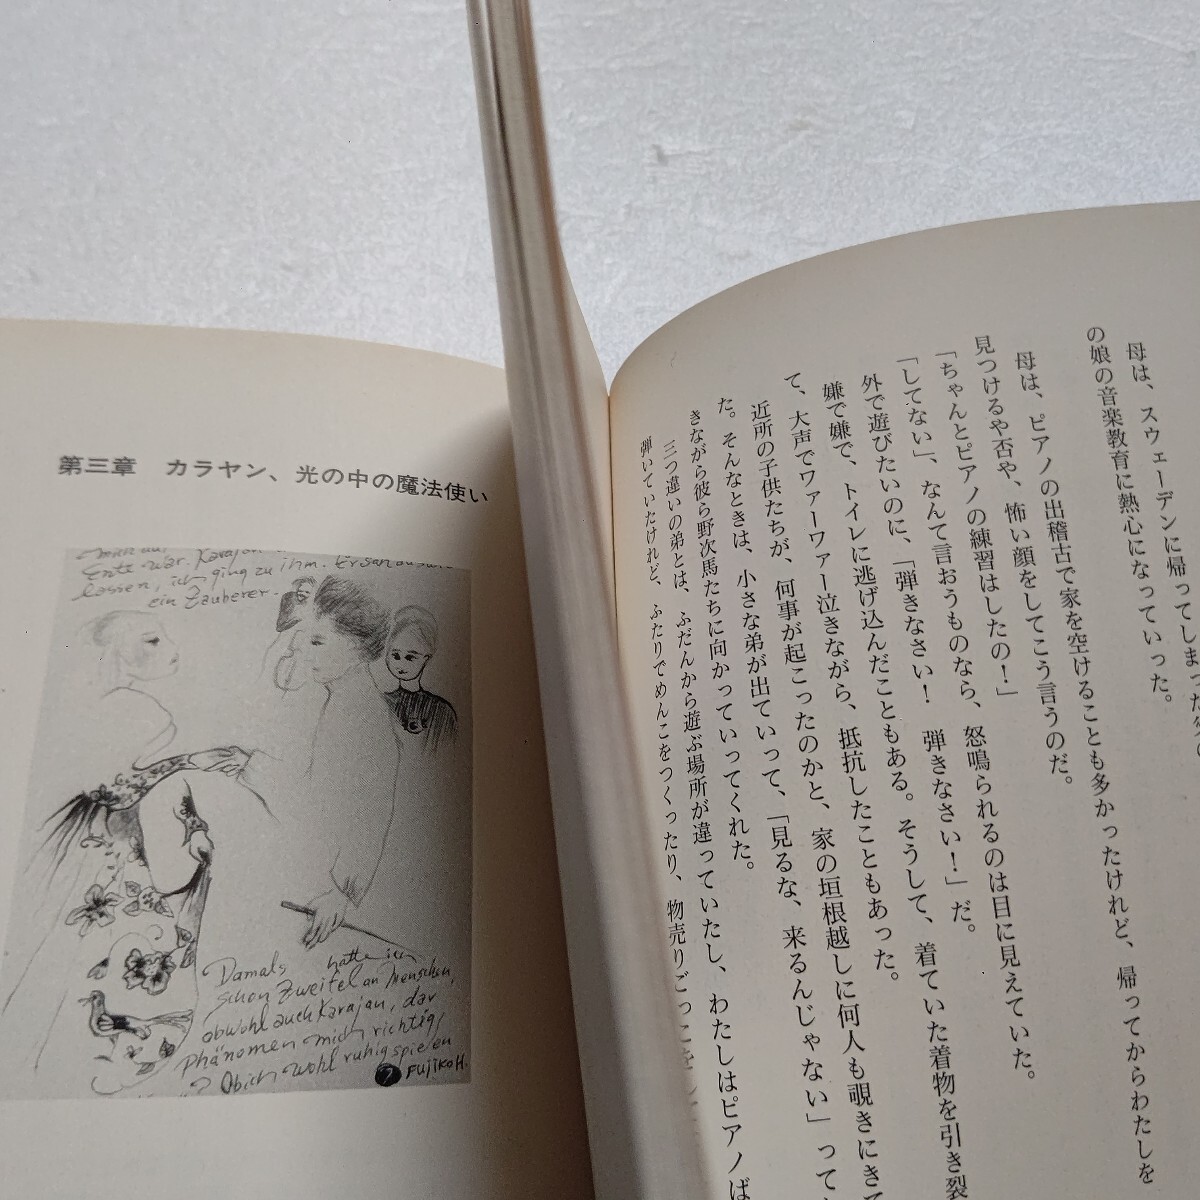 母は、スウェーデンに帰ってしまった
の娘の音楽教育に熱心になっていった。
母は、ピアノの出稽古で家を空けることも多かったけれど、帰ってからわたしを
見つけるや否や、怖い顔をしてこう言うのだ。
「ちゃんとピアノの練習はしたの！」
「してない」、なんて言おうものなら、怒鳴られるのは目に見えていた。
外で遊びたいのに、「弾きなさい！　弾きなさい！」だ。
嫌で嫌で、トイレに逃げ込んだこともある。そうして、着ていた着物を引き裂
て、大声でワァーワァー泣きながら、抵抗したこともあった。
近所の子供たちが、何事が起こったのかと、家の垣根越しに何人も覗きにきて
た。そんなときは、小さな弟が出ていって、「見るな、来るんじゃない」って
きながら彼ら野次馬たちに向かっていってくれた。
三つ違いの弟とは、ふだんから遊ぶ場所が違っていたし、わたしはピアノば
弾いていたけれど、ふたりでめんこをつくったり、物売りごっこをし
第三章　カラヤン、光の中の魔法使い
mich auf
Ente war. Karajan
lassen, ich ging zu ihm. Er sah aus wie
ein Zauberer.
Damals hatte ich
schon Zweifel an Menschen
obwohl auch Karajan, dar,
phänomen mich richtig,
? Ob ich wohl ruhig spielen
? FUJIKO H.